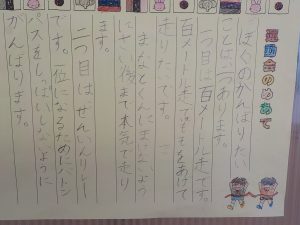 運動会のめあて
ぼくのがんばりたい
ことは二つあります。
一つ目は百メートル走です。
百メートル走で
をあげて
走りたいです。
まなとくんにまけないよう
にさい後まで本気で走り
ます。
二つ目はぜんいんリレー
です。一位になるためにバトン
パスをしっぱいしないように
がんばります。